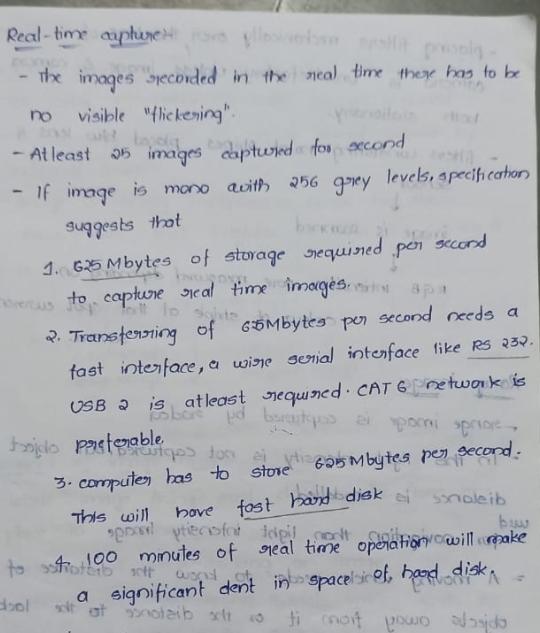 Real-time capture:-
- The images recorded in the real time there has to be
no visible "flickering".
- Atleast 25 images captured for second
- If image is mono with 256 grey levels, specification
suggests that
1. 625 Mbytes of storage required per second
to capture real time images.
2. Transferring of 625Mbytes per second needs a
fast interface, a wire serial interface like RS 232.
USB 2 is atleast required. CAT 6 network is
preferable.
3. computer has to store 625 Mbytes per second.
This will have fast hard disk
4. 100 minutes of real time operation will make
a significant dent in space of hard disk.